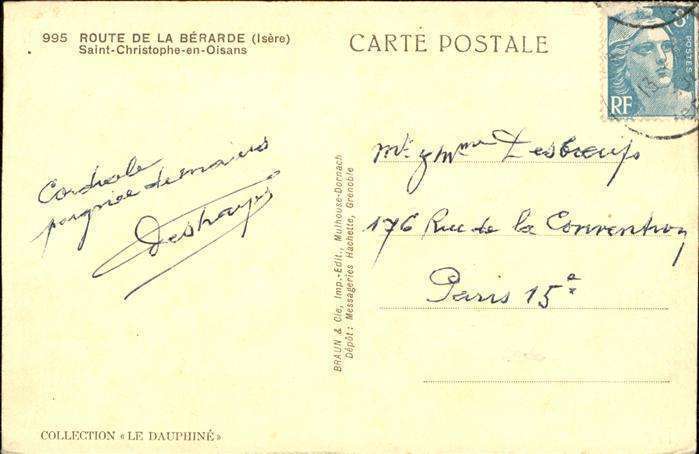 995 ROUTE DE LA BÉRARDE (Isère)
Saint-Christophe-en-Oisans
CARTE POSTALE
POSTES
RF
13
Cordiale
poignée de mains
Deshayes
BRAUN & Cie, Imp.-Edit., Mulhouse-Dornach
Dépôt: Messageries Hachette, Grenoble
Mr & Mme Desbœufs
176 Rue de la Convention
Paris 15e
COLLECTION « LE DAUPHINÉ »